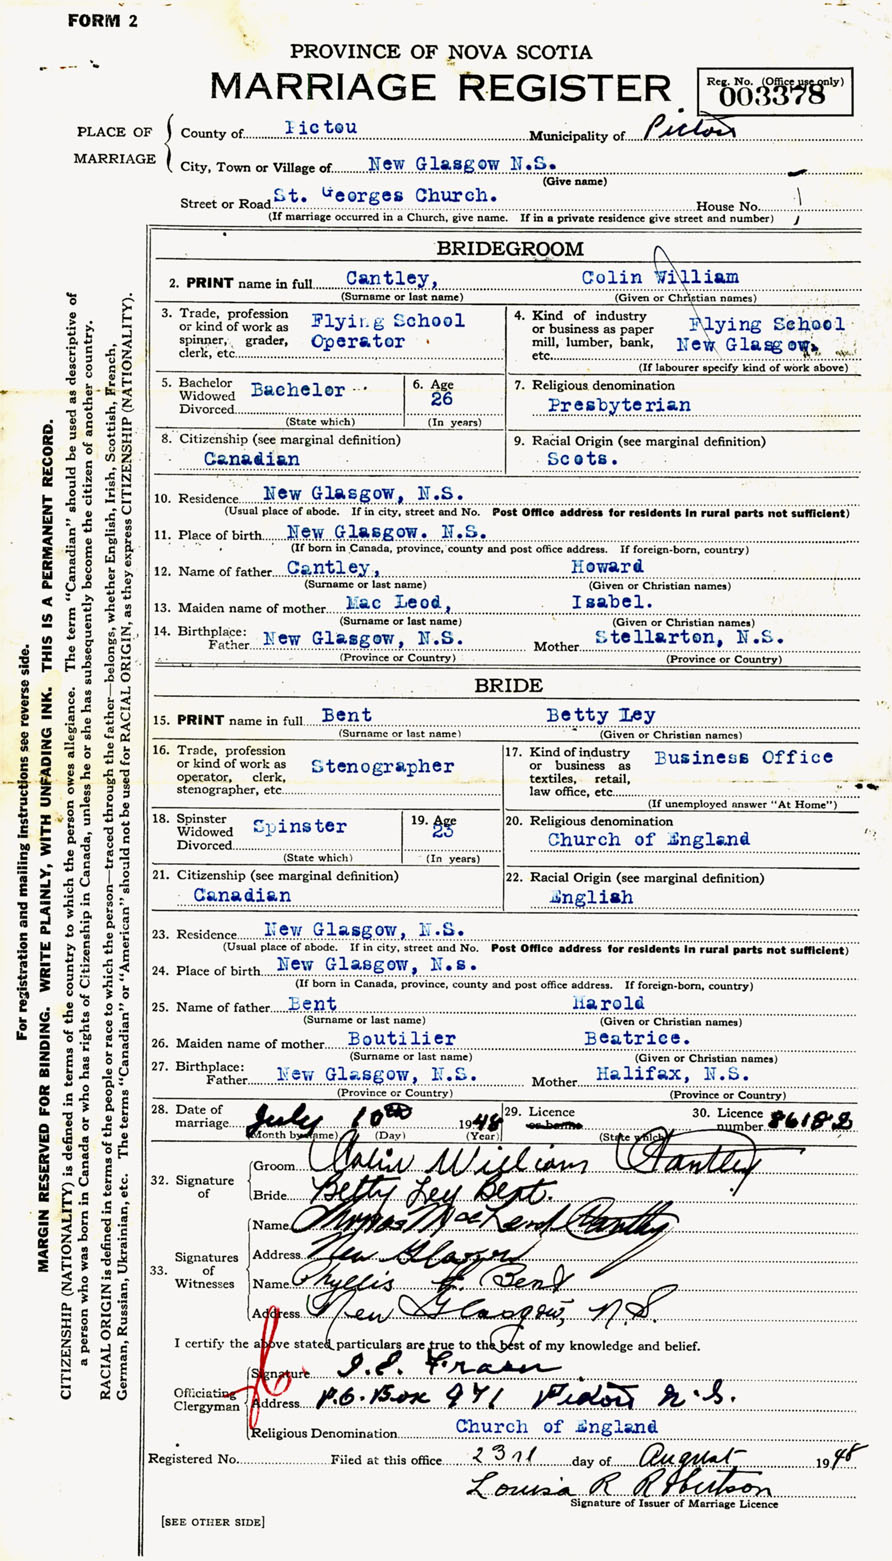 FORM 2
PROVINCE OF NOVA SCOTIA
MARRIAGE REGISTER
Reg. No. (Office use only)
003378
PLACE OF MARRIAGE
County of Pictou Municipality of Pictou
City, Town or Village of New Glasgow N.S.
(Give name)
Street or Road St. Georges Church. House No.
(If marriage occurred in a Church, give name. If in a private residence give street and number)
BRIDEGROOM
2. PRINT name in full Cantley, Colin William
(Surname or last name) (Given or Christian names)
3. Trade, profession or kind of work as spinner, grader, clerk, etc. Flying School Operator
4. Kind of industry or business as paper mill, lumber, bank, etc. Flying School New Glasgow.
(If labourer specify kind of work above)
5. Bachelor Widowed Divorced Bachelor
(State which)
6. Age 26
(In years)
7. Religious denomination
Presbyterian
8. Citizenship (see marginal definition)
Canadian
9. Racial Origin (see marginal definition)
Scots.
10. Residence New Glasgow, N.S.
(Usual place of abode. If in city, street and No. Post Office address for residents in rural parts not sufficient)
11. Place of birth New Glasgow. N.S.
(If born in Canada, province, county and post office address. If foreign-born, country)
12. Name of father Cantley, Howard
(Surname or last name) (Given or Christian names)
13. Maiden name of mother Mac Leod, Isabel.
(Surname or last name) (Given or Christian names)
14. Birthplace: Father New Glasgow, N.S. Mother Stellarton, N.S.
(Province or Country) (Province or Country)
BRIDE
15. PRINT name in full Bent Betty Ley
(Surname or last name) (Given or Christian names)
16. Trade, profession or kind of work as operator, clerk, stenographer, etc. Stenographer
17. Kind of industry or business as textiles, retail, law office, etc. Business Office
(If unemployed answer "At Home")
18. Spinster Widowed Divorced Spinster
(State which)
19. Age 23
(In years)
20. Religious denomination
Church of England
21. Citizenship (see marginal definition)
Canadian
22. Racial Origin (see marginal definition)
English
23. Residence New Glasgow, N.S.
(Usual place of abode. If in city, street and No. Post Office address for residents in rural parts not sufficient)
24. Place of birth New Glasgow, N.s.
(If born in Canada, province, county and post office address. If foreign-born, country)
25. Name of father Bent Harold
(Surname or last name) (Given or Christian names)
26. Maiden name of mother Boutilier Beatrice.
(Surname or last name) (Given or Christian names)
27. Birthplace: Father New Glasgow, N.S. Mother Halifax, N.S.
(Province or Country) (Province or Country)
28. Date of marriage July 10th 1948
(Month by name) (Day) (Year)
29. Licence or banns
(State which)
30. Licence number 86182
32. Signature of
Groom Colin William Cantley
Bride Betty Ley Bent.
33. Signatures of Witnesses
Name Thomas MacLeod Cantley
Address New Glasgow
Name Phyllis Bent
Address New Glasgow, N.S.
I certify the above stated particulars are true to the best of my knowledge and belief.
Officiating Clergyman
Signature Fraser
Address P.O. Box 971 Pictou N.S.
Religious Denomination Church of England
Registered No. Filed at this office 23rd day of August 1948
Louisa R Robertson
Signature of Issuer of Marriage Licence
[SEE OTHER SIDE]
For registration and mailing instructions see reverse side.
MARGIN RESERVED FOR BINDING. WRITE PLAINLY, WITH UNFADING INK. THIS IS A PERMANENT RECORD.
CITIZENSHIP (NATIONALITY) is defined in terms of the country to which the person owes allegiance. The term "Canadian" should be used as descriptive of
a person who was born in Canada or who has rights of Citizenship in Canada, unless he or she has subsequently become the citizen of another country.
RACIAL ORIGIN is defined in terms of the people or race to which the person—traced through the father—belongs, whether English, Irish, Scottish, French,
German, Russian, Ukrainian, etc. The terms "Canadian" or "American" should not be used for RACIAL ORIGIN, as they express CITIZENSHIP (NATIONALITY).